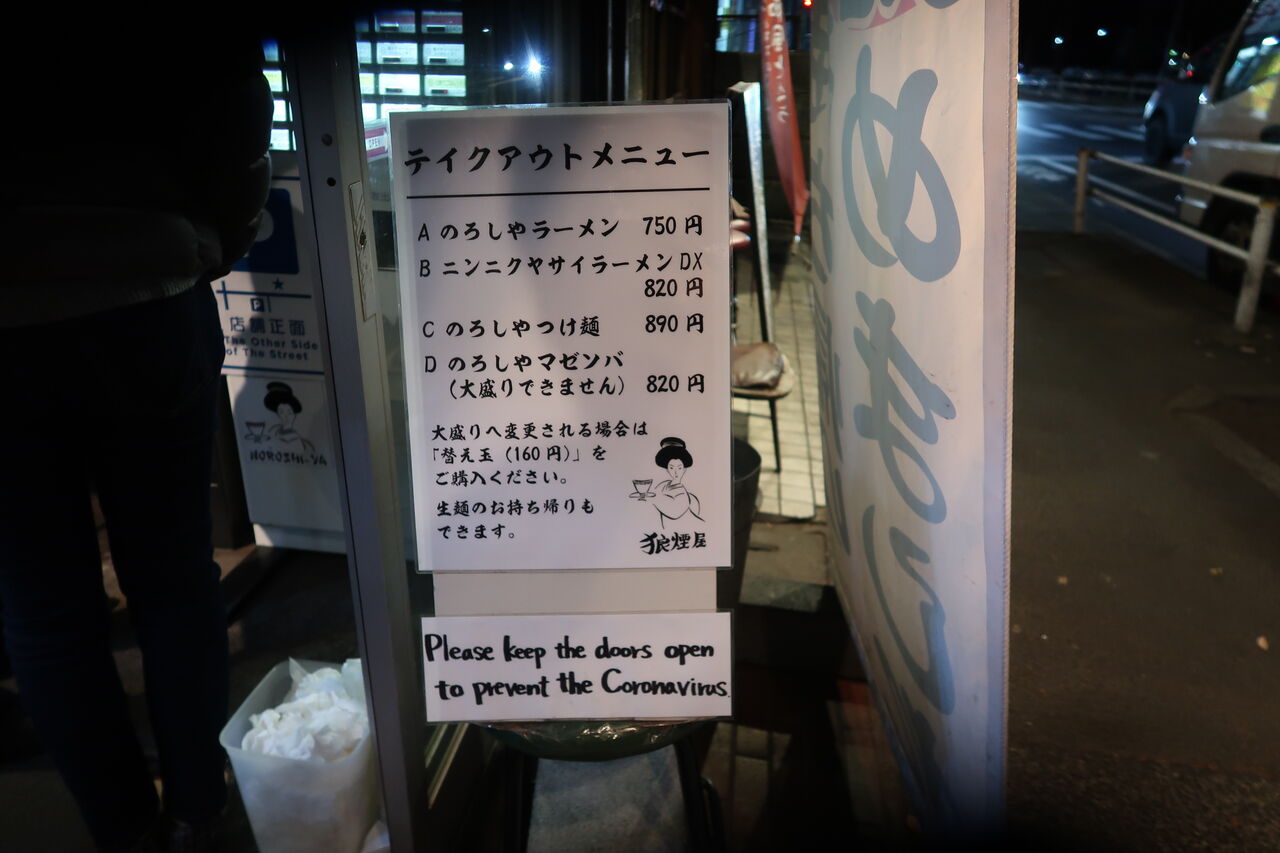 テイクアウトメニュー
A のろしやラーメン 750円
B ニンニクヤサイラーメンDX
820円
C のろしやつけ麺 890円
D のろしやマゼソバ
（大盛りできません） 820円
大盛りへ変更される場合は
「替え玉（160円）」を
ご購入ください。
生麺のお持ち帰りも
できます。
狼煙屋
Please keep the doors open
to prevent the Coronavirus.
店舗正面
The Other Side
of The Street
NOROSHI-YA